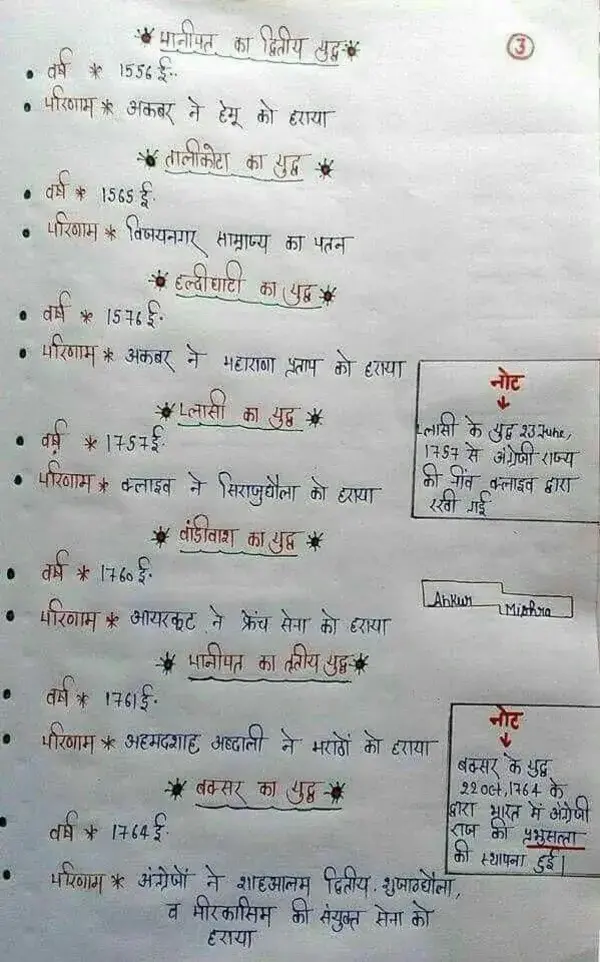 ③
पानीपत का द्वितीय युद्ध
• वर्ष * 1556 ई.
• परिणाम * अकबर ने हेमू को हराया
तालीकोटा का युद्ध
• वर्ष * 1565 ई.
• परिणाम * विजयनगर साम्राज्य का पतन
हल्दीघाटी का युद्ध
• वर्ष * 1576 ई.
• परिणाम * अकबर ने महाराणा प्रताप को हराया
प्लासी का युद्ध
• वर्ष * 1757 ई.
• परिणाम * क्लाइव ने सिराजुद्दौला को हराया
नोट
↓
प्लासी के युद्ध 23 June,
1757 से अंग्रेजी राज्य
की नींव क्लाइव द्वारा
रखी गई
वांडीवाश का युद्ध
• वर्ष * 1760 ई.
• परिणाम * आयरकूट ने फ्रेंच सेना को हराया
Ankur Mishra
पानीपत का तृतीय युद्ध
• वर्ष * 1761 ई.
• परिणाम * अहमदशाह अब्दाली ने मराठों को हराया
बक्सर का युद्ध
• वर्ष * 1764 ई.
• परिणाम * अंग्रेजों ने शाहआलम द्वितीय, शुजाउद्दौला,
व मीरकासिम की संयुक्त सेना को
हराया
नोट
↓
बक्सर के युद्ध
22 Oct, 1764 के
द्वारा भारत में अंग्रेजी
राज की प्रभुसत्ता
की स्थापना हुई।